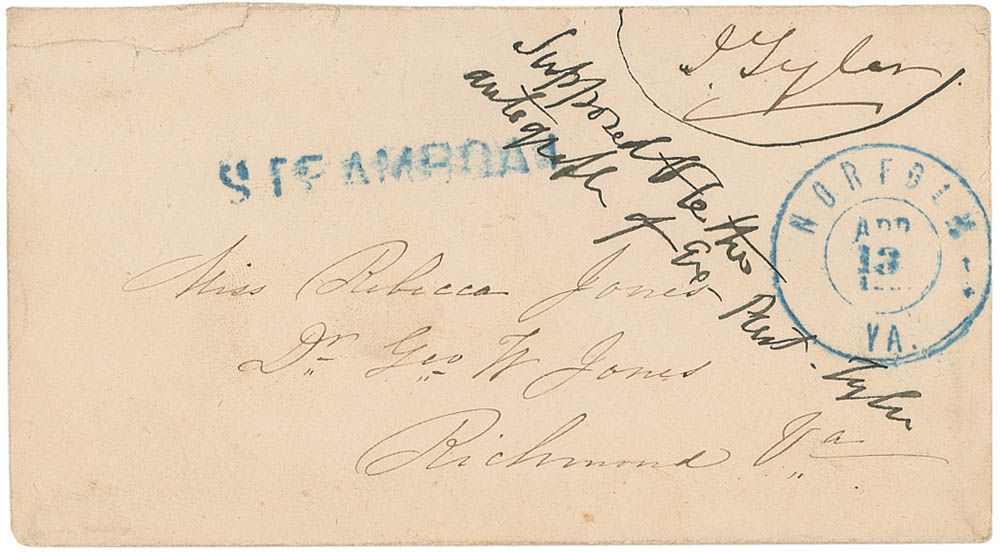 J. Tyler
Supposed to be the
autograph of Ex-Prest. Tyler
STEAMBOAT
NORFOLK
APR
13
VA.
Miss Rebecca Jones
Dr. Geo W Jones
Richmond Va